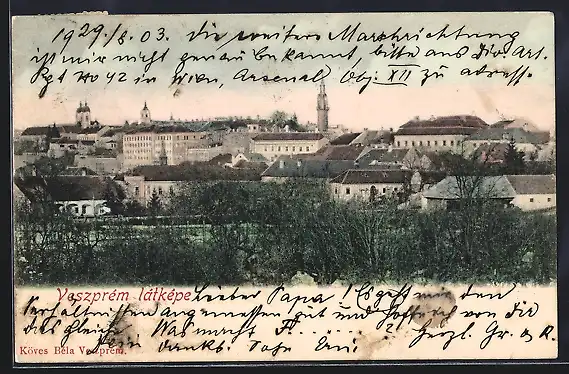 1929/8.03. die weitere Marschrichtung
ist mir nicht genau bekannt, bitte aus die Art.
Rgt No 42 in Wien, Arsenal Obj. XII zu adress
Veszprém látképe. Lieber Papa! Es geht mir den
Verhältnissen angemessen gut und hoffe von Dir
das gleiche. Was macht ? Herzl. Gr. u. K
Dein dankb. Sohn
Köves Béla Veszprém.